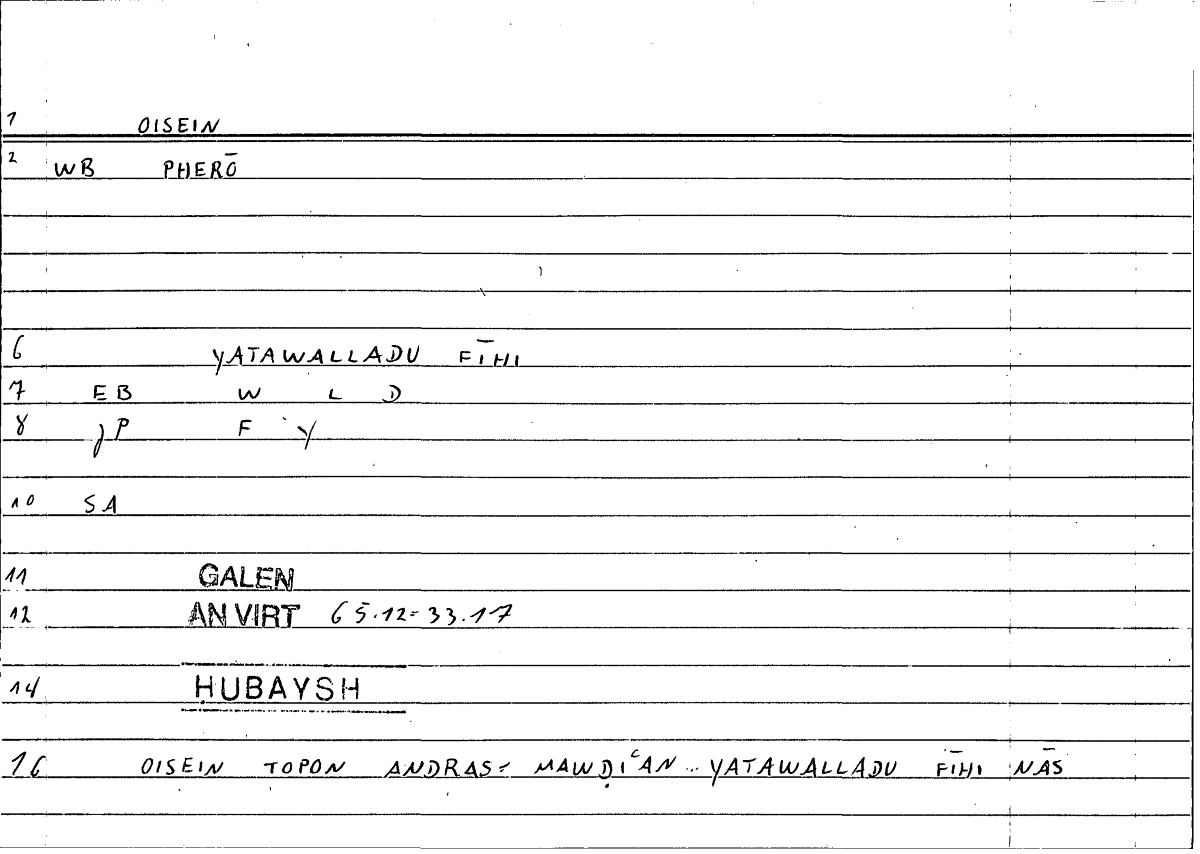 1 OISEIN
2 WB PHERŌ
6 YATAWALLADU FĪHI
7 EB W L D
8 JP F Y
10 SA
11 GALEN
12 AN VIRT 65.12=33.17
14 ḤUBAYSH
16 OISEIN TOPON ANDRAS= MAWḌIʿAN.. YATAWALLADU FĪHI NĀS